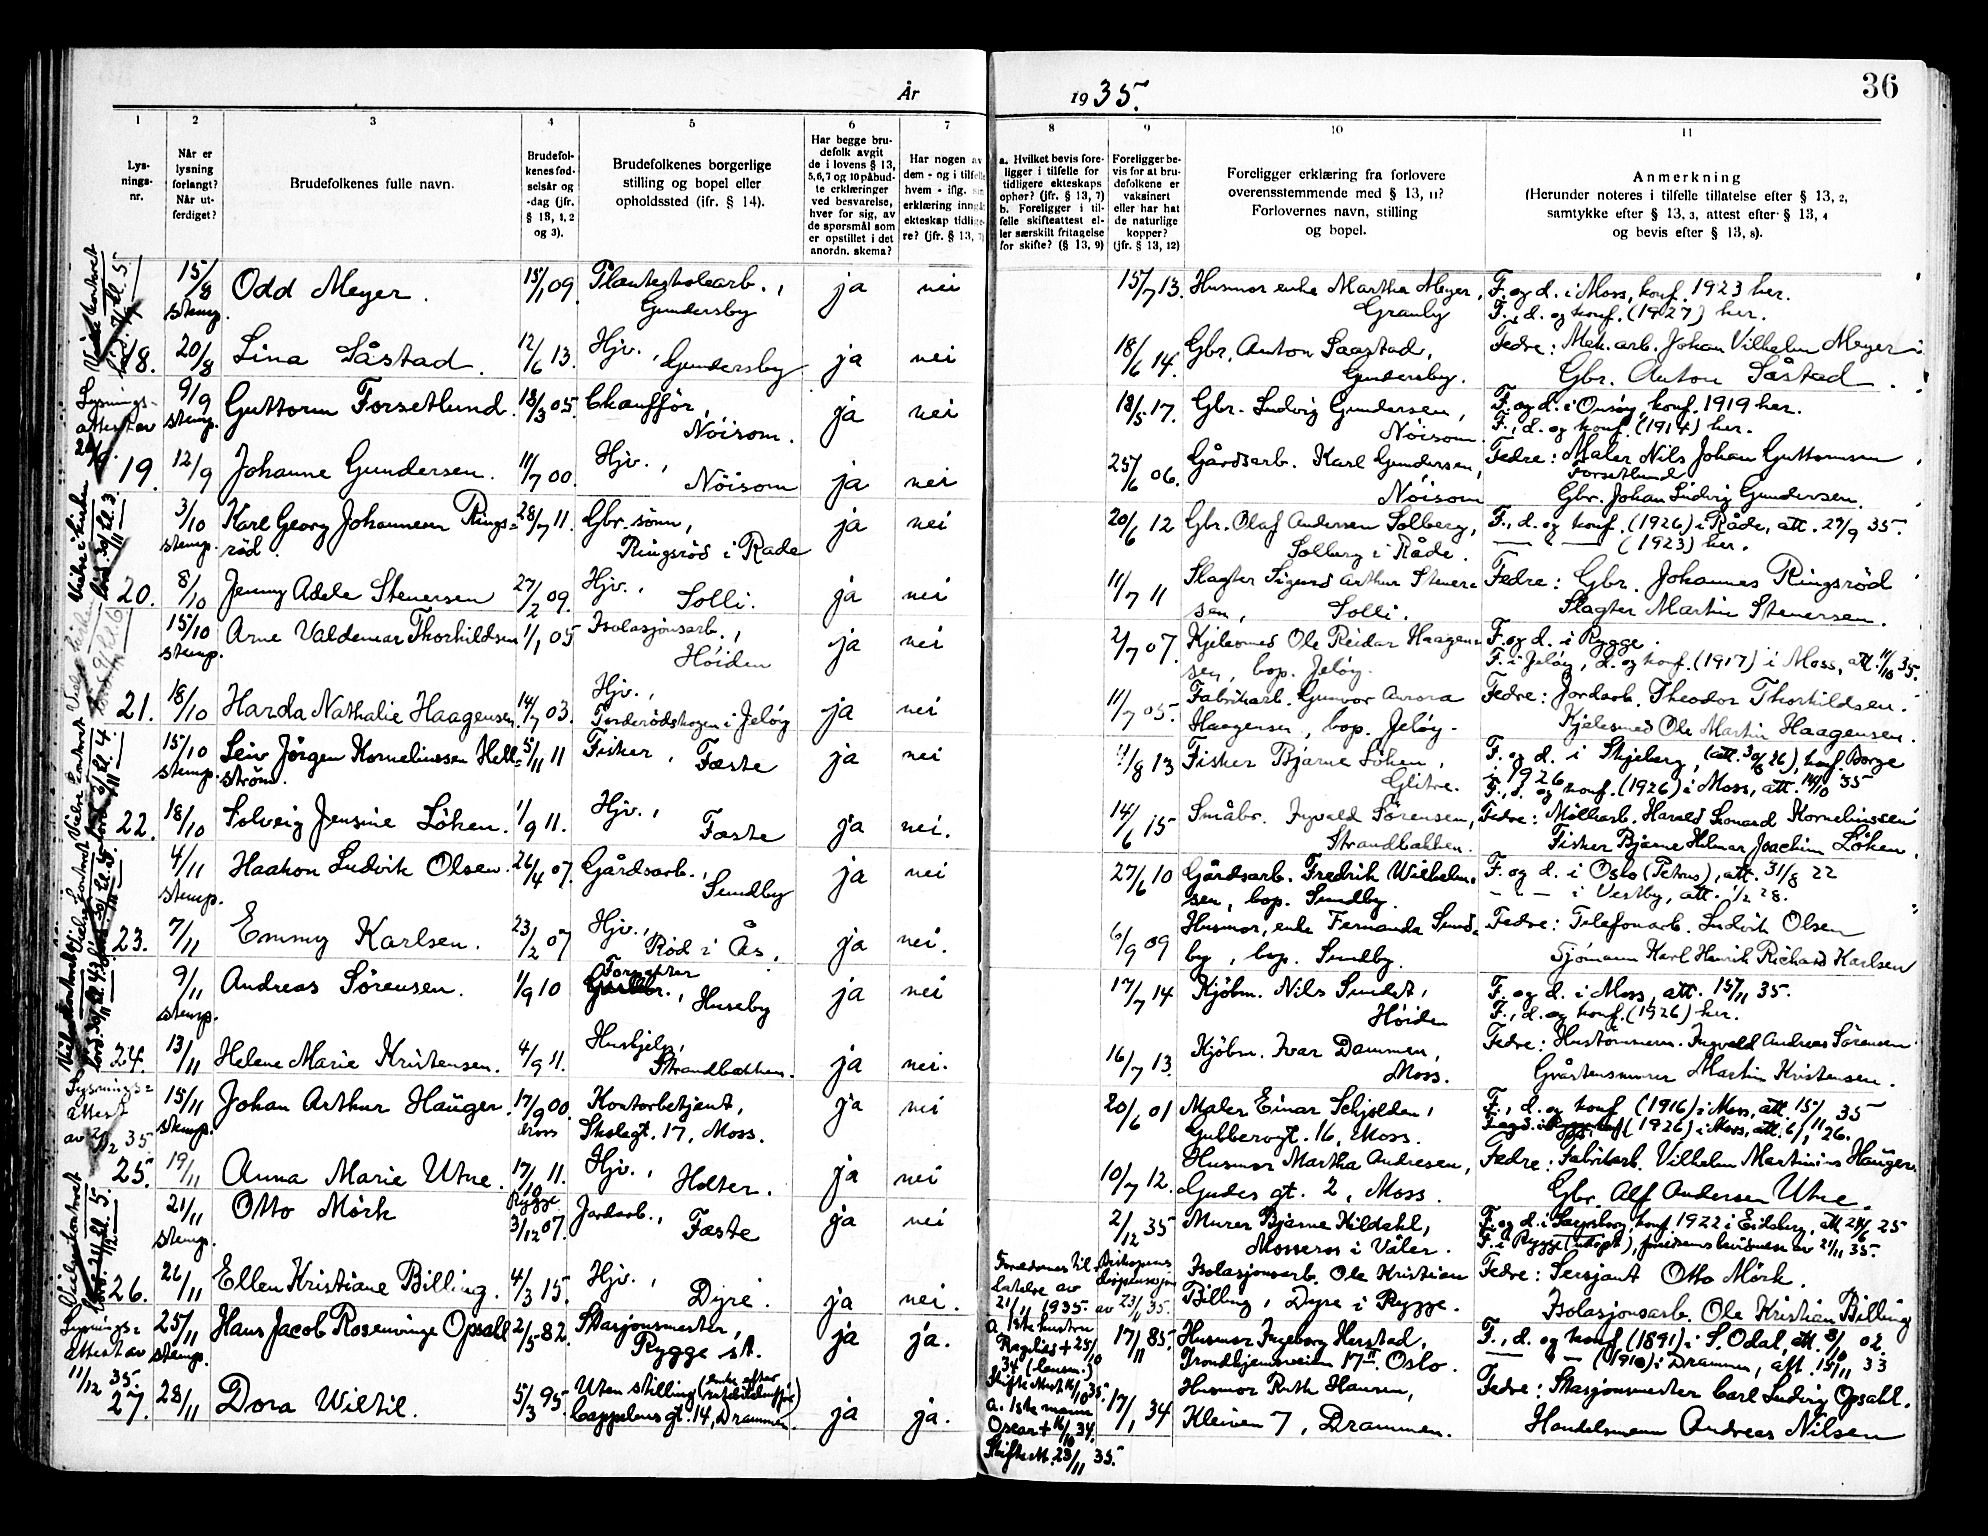 År 1935.
36
1 2 3 4 5 6 7 8 9 10 11
Lysnings-nr.
Når er lysning forlangt? Når utferdiget?
Brudefolkenes fulle navn.
Brudefolkenes fødselsår og -dag (jfr. § 13, 1, 2 og 3).
Brudefolkenes borgerlige stilling og bopel eller opholdssted (ifr. § 14).
Har begge brudefolk avgit de i lovens § 13, 5, 6, 7 og 10 påbudte erklæringer ved besvarelse, hver for sig, av de spørsmål som er opstillet i det anordn. skema?
a. Hvilket bevis foreligger i tilfelle for tidligere ekteskaps ophør? (jfr. § 13, 7)
b. Foreligger i tilfelle skifteattest eller særskilt fritagelse for skifte? (§ 13, 9)
Foreligger bevis for at brudefolkene er vaksinert eller har hat de naturlige kopper? (jfr. § 13, 12)
Foreligger erklæring fra forlovere overensstemmende med § 13, 11? Forlovernes navn, stilling og bopel.
Anmerkning
(Herunder noteres i tilfelle tillatelse efter § 13, 2, samtykke efter § 13, 3, attest efter § 13, 4 og bevis efter § 13, 8).
15/8 stemp. Odd Meyer. 15/1 09. Planteskolearb., Gundersby ja nei 15/7 13. Husmor enke Martha Meyer, Granly F. og d. i Moss, konf. 1923 her.
F., d. og konf. (1927) her.
18. 20/8 Lina Såstad. 12/6 13. Hjv., Gundersby ja nei 18/6 14. Gbr. Anton Saastad, Gundersby. Fedre: Mek. arb. Johan Vilhelm Meyer
Gbr. Anton Såstad.
9/9 stemp. Guttorm Forsetlund. 18/3 05. Chauffør, Nöisom. ja nei 18/5 17. Gbr. Ludvig Gundersen, Nöisom F. og d. i Onsøy, konf. 1919 her.
F., d. og konf. (1914) her.
19. 12/9 Johanne Gundersen. 11/7 00. Hjv., Nöisom ja nei 25/6 06. Gårdsarb. Karl Gundersen, Nöisom Fedre: Maler Nils Johan Guttormsen Forsetlund
Gbr. Johan Ludvig Gundersen.
3/10 stemp. Karl Georg Johannesen Ringsröd. 28/7 11. Gbr. sönn, Ringsröd i Råde ja nei 20/6 12 Gbr. Olaf Andersen Solberg, Solberg i Råde. F., d. og konf. (1926) i Råde, att. 29/9 35.
— " — (1923) her.
20. 8/10 Jenny Adele Stenersen 27/2 09. Hjv., Solli. ja nei 11/7 11 Slagter Sigurd Arthur Stenersen, Solli. Fedre: Gbr. Johannes Ringsröd
Slagter Martin Stenersen.
15/10 stemp. Arne Valdemar Thorkildsen 1/1 05 Isolasjonsarb., Höiden ja nei 2/7 07. Kjelesmed Ole Reidar Haagensen, bop. Jelöy. F. og d. i Rygge.
F. i Jelöy, d. og konf. (1917) i Moss, att. 11/10 35.
21. 18/10 Harda Nathalie Haagensen. 14/7 03. Hjv., Torderödskogen i Jelöy ja nei 11/7 05. Fabrikarb. Gunvor Aurora Haagensen, bop. Jelöy. Fedre: Jordarb. Theodor Thorkildsen.
Kjelesmed Ole Martin Haagensen.
15/10 stemp. Leiv Jörgen Korneliussen Hellström. 5/11 11 Fisker, Fæste ja nei 9/8 13 Fisker Bjarne Löken, Glitre. F. og d. i Skjeberg, (att. 30/6 26), konf. Borge i 1926
F., d. og konf. (1926) i Moss, att. 14/10 35
22. 18/10 Solveig Jensine Löken. 1/9 11. Hjv., Fæste ja nei. 14/6 15 Småbr. Ingvald Sörensen, Strandbakken. Fedre: Möllearb. Harald Leonard Korneliussen
Fisker Bjarne Hilmar Joachim Löken.
4/11 stemp. Haakon Ludvik Olsen. 26/4 07. Gårdsarb., Sundby ja nei 27/6 10 Gårdsarb. Fredrik Wilhelmsen, bop. Sundby. F. og d. i Oslo (Petrus), att. 31/8 22
— " — i Vestby, att. 1/2 28.
23. 7/11 Emmy Karlsen. 23/2 07 Hjv., Röd i Ås, ja nei. 6/9 09 Husmor, enke Fernanda Sundby, bop. Sundby. Fedre: Telefonarb. Ludvik Olsen
Sjömann Karl Henrik Richard Karlsen
9/11 stemp. Andreas Sörensen. 1/9 10 Forpakter, Huseby ja nei 17/7 14 Kjöbm. Nils Sundet, Höiden F. og d. i Moss, att. 15/11 35.
F., d. og konf. (1926) her.
24. 13/11 Helene Marie Kristensen. 4/9 11. Hushjelp, Strandbakken. ja nei. 16/7 13. Kjöbm. Ivar Dammen, Moss. Fedre: Hustömmerm. Ingvald Andreas Sörensen
Gråstensmurer Martin Kristensen.
15/11 stemp. Johan Arthur Hauger. 17/9 00. Moss Kontorbetjent, Skolegt. 17, Moss. ja nei 20/6 01 Maler Einar Schjolden, Gubberogt. 16, Moss. F., d. og konf. (1916) i Moss, att. 15/11 35
(1926) i Moss, att. 6/1 26.
25. 19/11 Anna Marie Utne. 17/10 11. Rygge Hjv., Holter. ja nei 10/7 12. Husmor Martha Andresen, Gudes gt. 2, Moss. Fedre: Fabrikarb. Vilhelm Martinius Hauger.
Gbr. Alf Andersen Utne.
21/11 stemp. Otto Mörk 3/12 07. Jordarb., Fæste ja nei 2/12 35 Murer Bjarne Kildahl, Mosseros i Våler. F. og d. i Sarpsborg, konf. 1922 i Eidsberg, att. 25
F. i Rygge (udöpt), av 21/11 35.
26. 26/11 Ellen Kristiane Billing. 4/3 15. Hjv., Dyre. ja nei. Foreldrenes tillatelse av 21/11 1935. Biskopens dispensasjon av 23/11 35. Isolasjonsarb. Ole Kristian Billing, Dyre i Rygge. Fedre: Sersjant Otto Mörk.
Isolasjonsarb. Ole Kristian Billing
25/11 stemp. Hans Jacob Rosenvinge Opsahl 2/5 82. Stasjonsmester, Rygge st. ja ja. a. 1ste hustru Ragnhild + 25/10 34 Skifteattest 16/10 35. 17/11 85. Husmor Ingeborg Herstad, Trondhjemsveien 17 II. Oslo. F., d. og konf. (1891) i S. Odal, att. 8/10 02.
— " — (1910) i Drammen, att. 15/11 33
27. 28/11 Dora Wiltil. 5/3 95. Uten stilling (enke efter) Cappelens gt. 14, Drammen. ja ja. a. 1ste mann Oscar + 16/10 34. Skifteatt. 23/11 35. 17/1 34 Husmor Ruth Hansen, Kleiven 7, Drammen. Fedre: Stasjonsmester Carl Ludvig Opsahl.
Handelsmann Andreas Nilsen
Lysnings-
attest av
Lysnings-
attest
av 2/12 35.
Lysnings-
attest av
11/12 35.